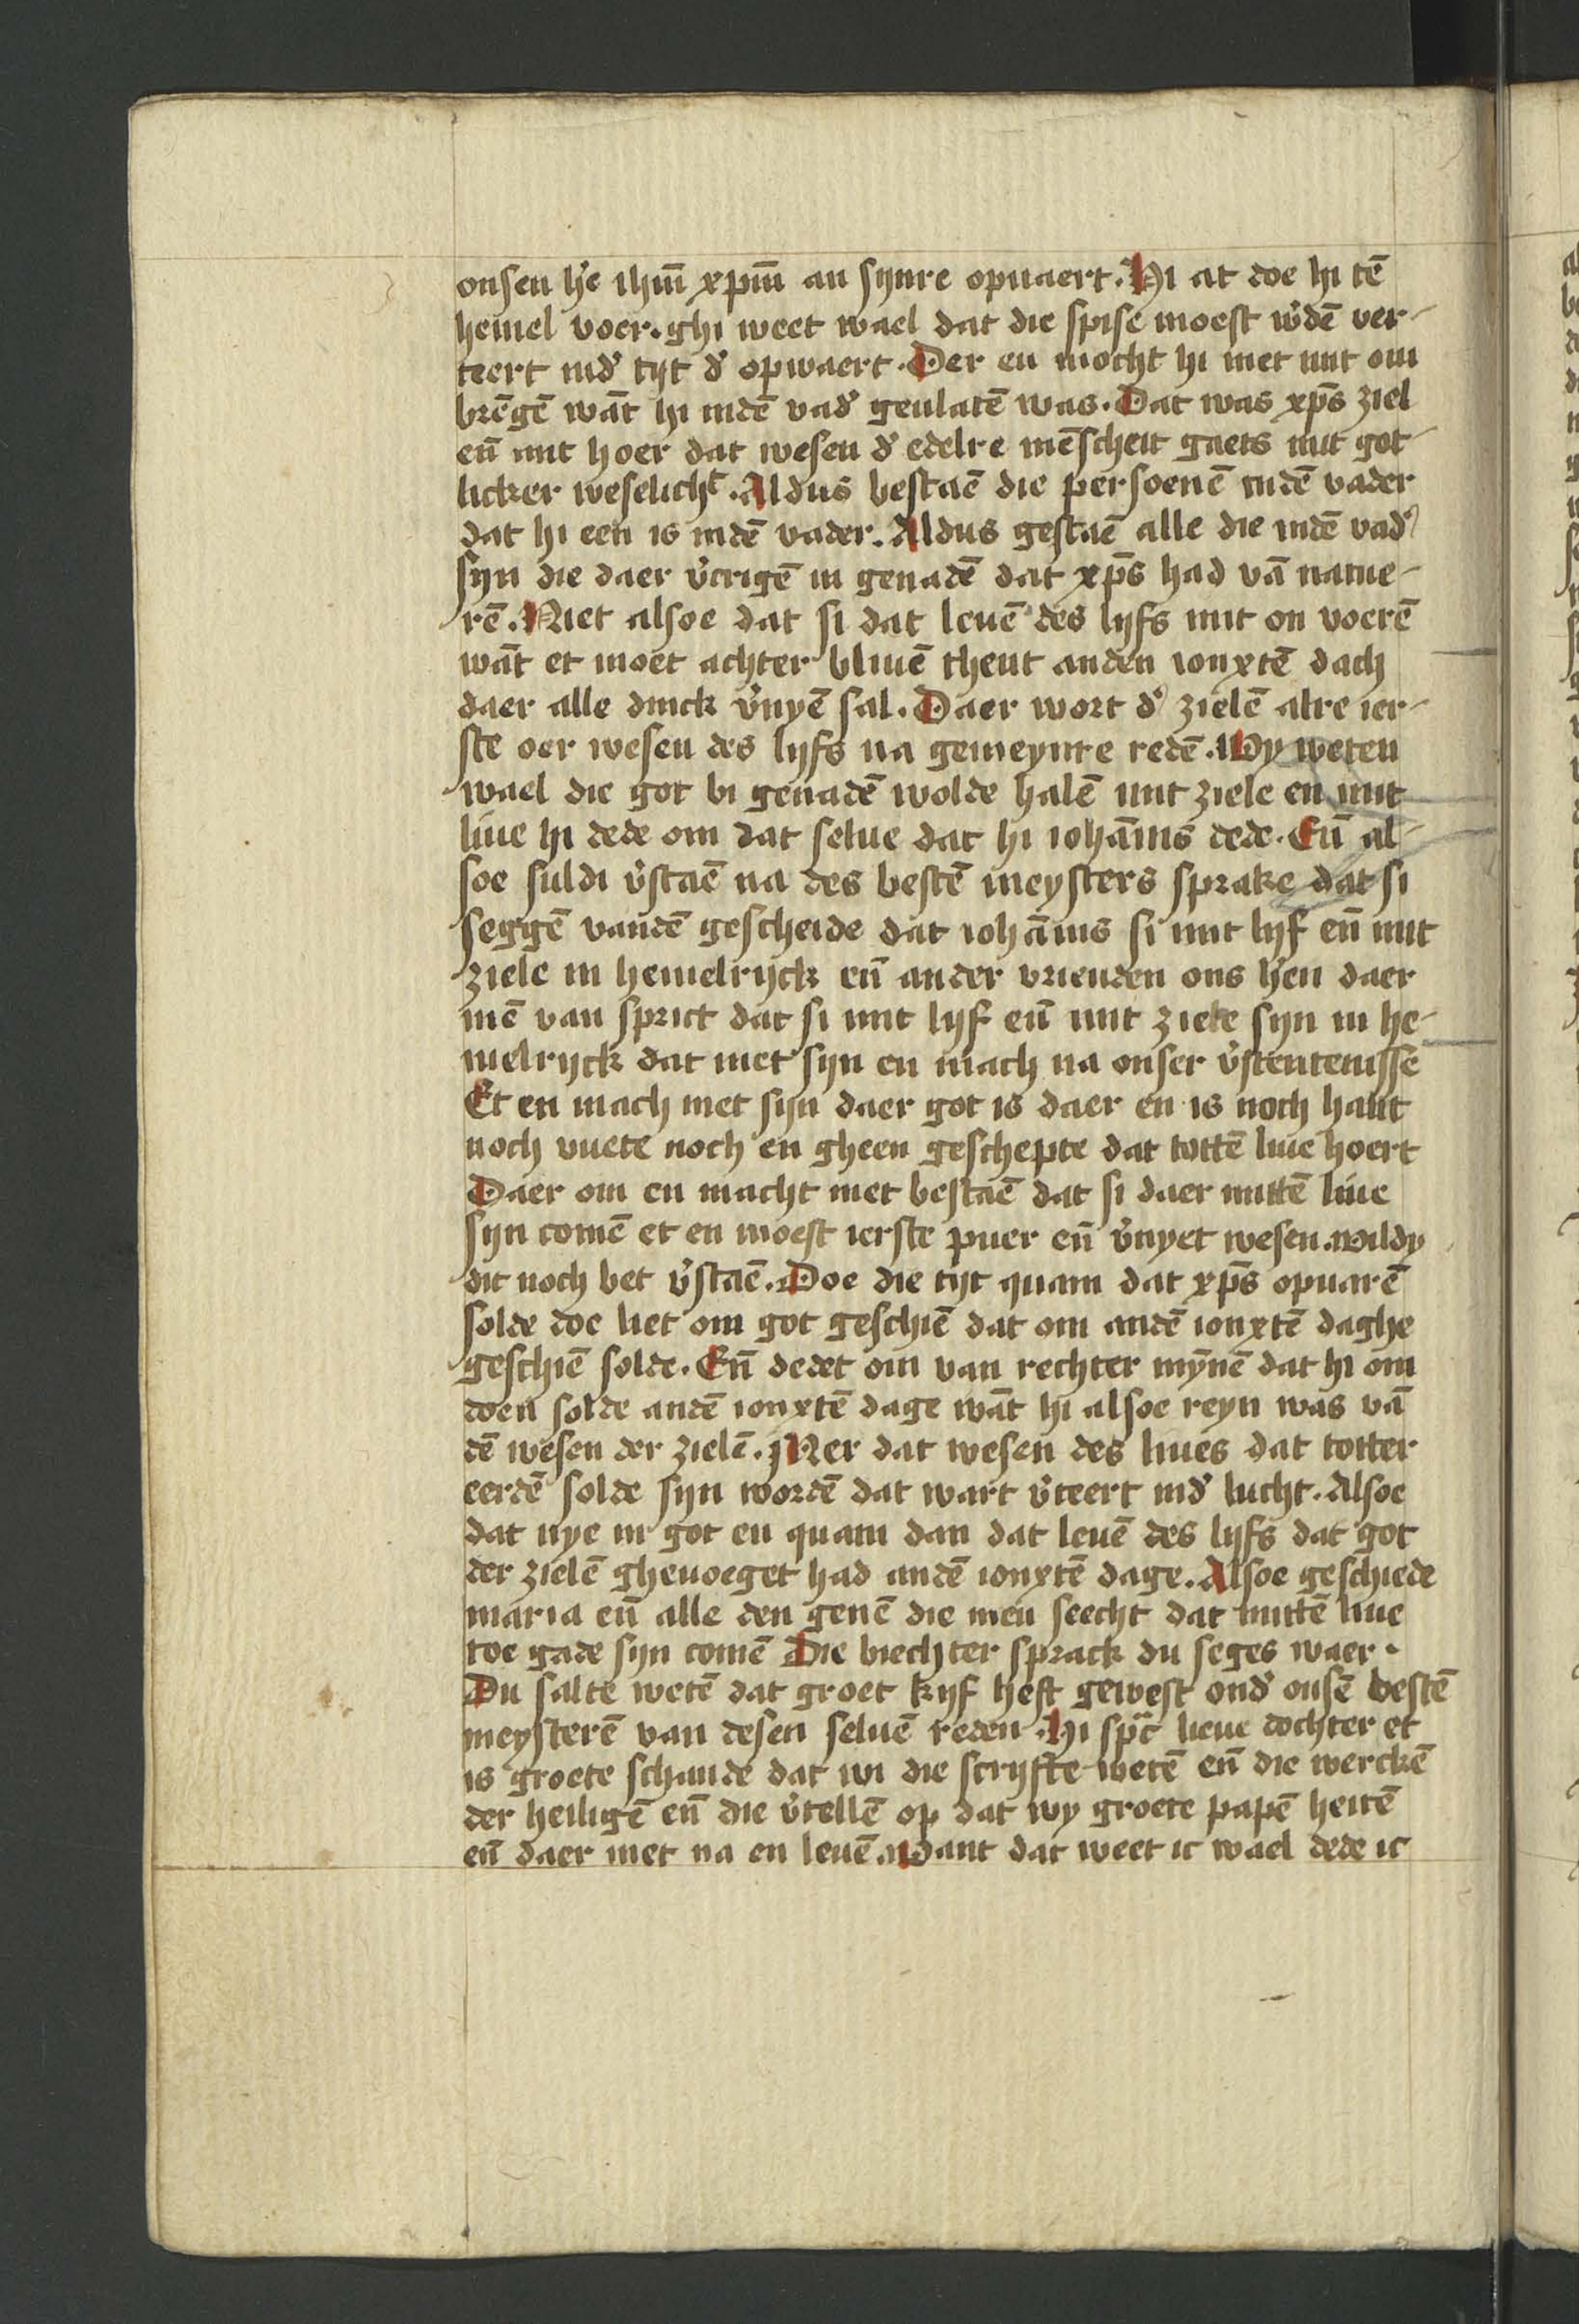 onsen h'e ihm̄ xpm̄ an sijnre opuaert. Hi at doe hi tē
hemel voer. ghi weet wael dat die spise moest w'dē ver-
teert ind' tijt d' opwaert. Der en mocht hi niet mit om
brēgē wāt hi indē vad' geulatē was. Dat was xp̄s ziel
en̄ mit hoer dat wesen d' edelre mēscheit gaets mit got-
licker weselicht. Aldus bestaē die persoenē indē vader
dat hi een is indē vader. Aldus gestaē alle die indē vad'
sijn die daer v'crigē in genadē dat xp̄s had vā natue-
rē. Niet alsoe dat si dat leuē des lijfs mit on voerē
wāt et moet achter bliuē thent anden ionxtē dach
daer alle dinck v'nyē sal. Daer wort d' zielē alre ier-
ste oer wesen des lijfs na gemeynre redē. Wy weten
wael die got bi genadē wolde halē mit ziele en mit
liue hi dede om dat selue dat hi iohānis dede. En̄ al-
soe suldi v'staē na des bestē meysters sprake dat si
seggē vandē gescheide dat iohānis si mit lijf en̄ mit
ziele in hemelrijck en̄ ander vrienden ons h'en daer
mē van sprict dat si mit lijf en̄ mit ziele sijn in he-
melrijck dat niet sijn en mach na onser v'stentenisse
Et en mach niet sijn daer got is daer en is noch hant
noch vuete noch en gheen geschepte dat tottē liue hoert
Daer om en macht niet bestaē dat si daer mittē liue
sijn comē et en moest ierste puer en̄ v'nyet wesen. wildy
dit noch bet v'staē. Doe die tijt quam dat xp̄s opuarē
solde doe liet om got geschiē dat om andē ionxtē daghe
geschiē solde. En̄ dedet om van rechter mȳnē dat hi om
doen solde andē ionxtē dage wāt hi alsoe reyn was vā
dē wesen der zielē. Mer dat wesen des liues dat totter
eerdē solde sijn wordē dat wart v'teert ind' lucht. Alsoe
dat nye in got en quam dan dat leuē des lijfs dat got
der zielē gheuoeget had andē ionxtē dage. Alsoe geschiede
maria en̄ alle den genē die men seecht dat mittē liue
toe gade sijn comē Die biechter sprack du seges waer.
Du salte wetē dat groet kijf heft gewest ond' onsē bestē
meysterē van desen seluē reden. Hi spc̄ lieue dochter et
is groete schande dat wi die scrijfte wetē en̄ die werckē
der heiligē en̄ die v'tellē op dat wy groete papē heitē
en̄ daer niet na en leuē. Want dat weet ic wael dede ic